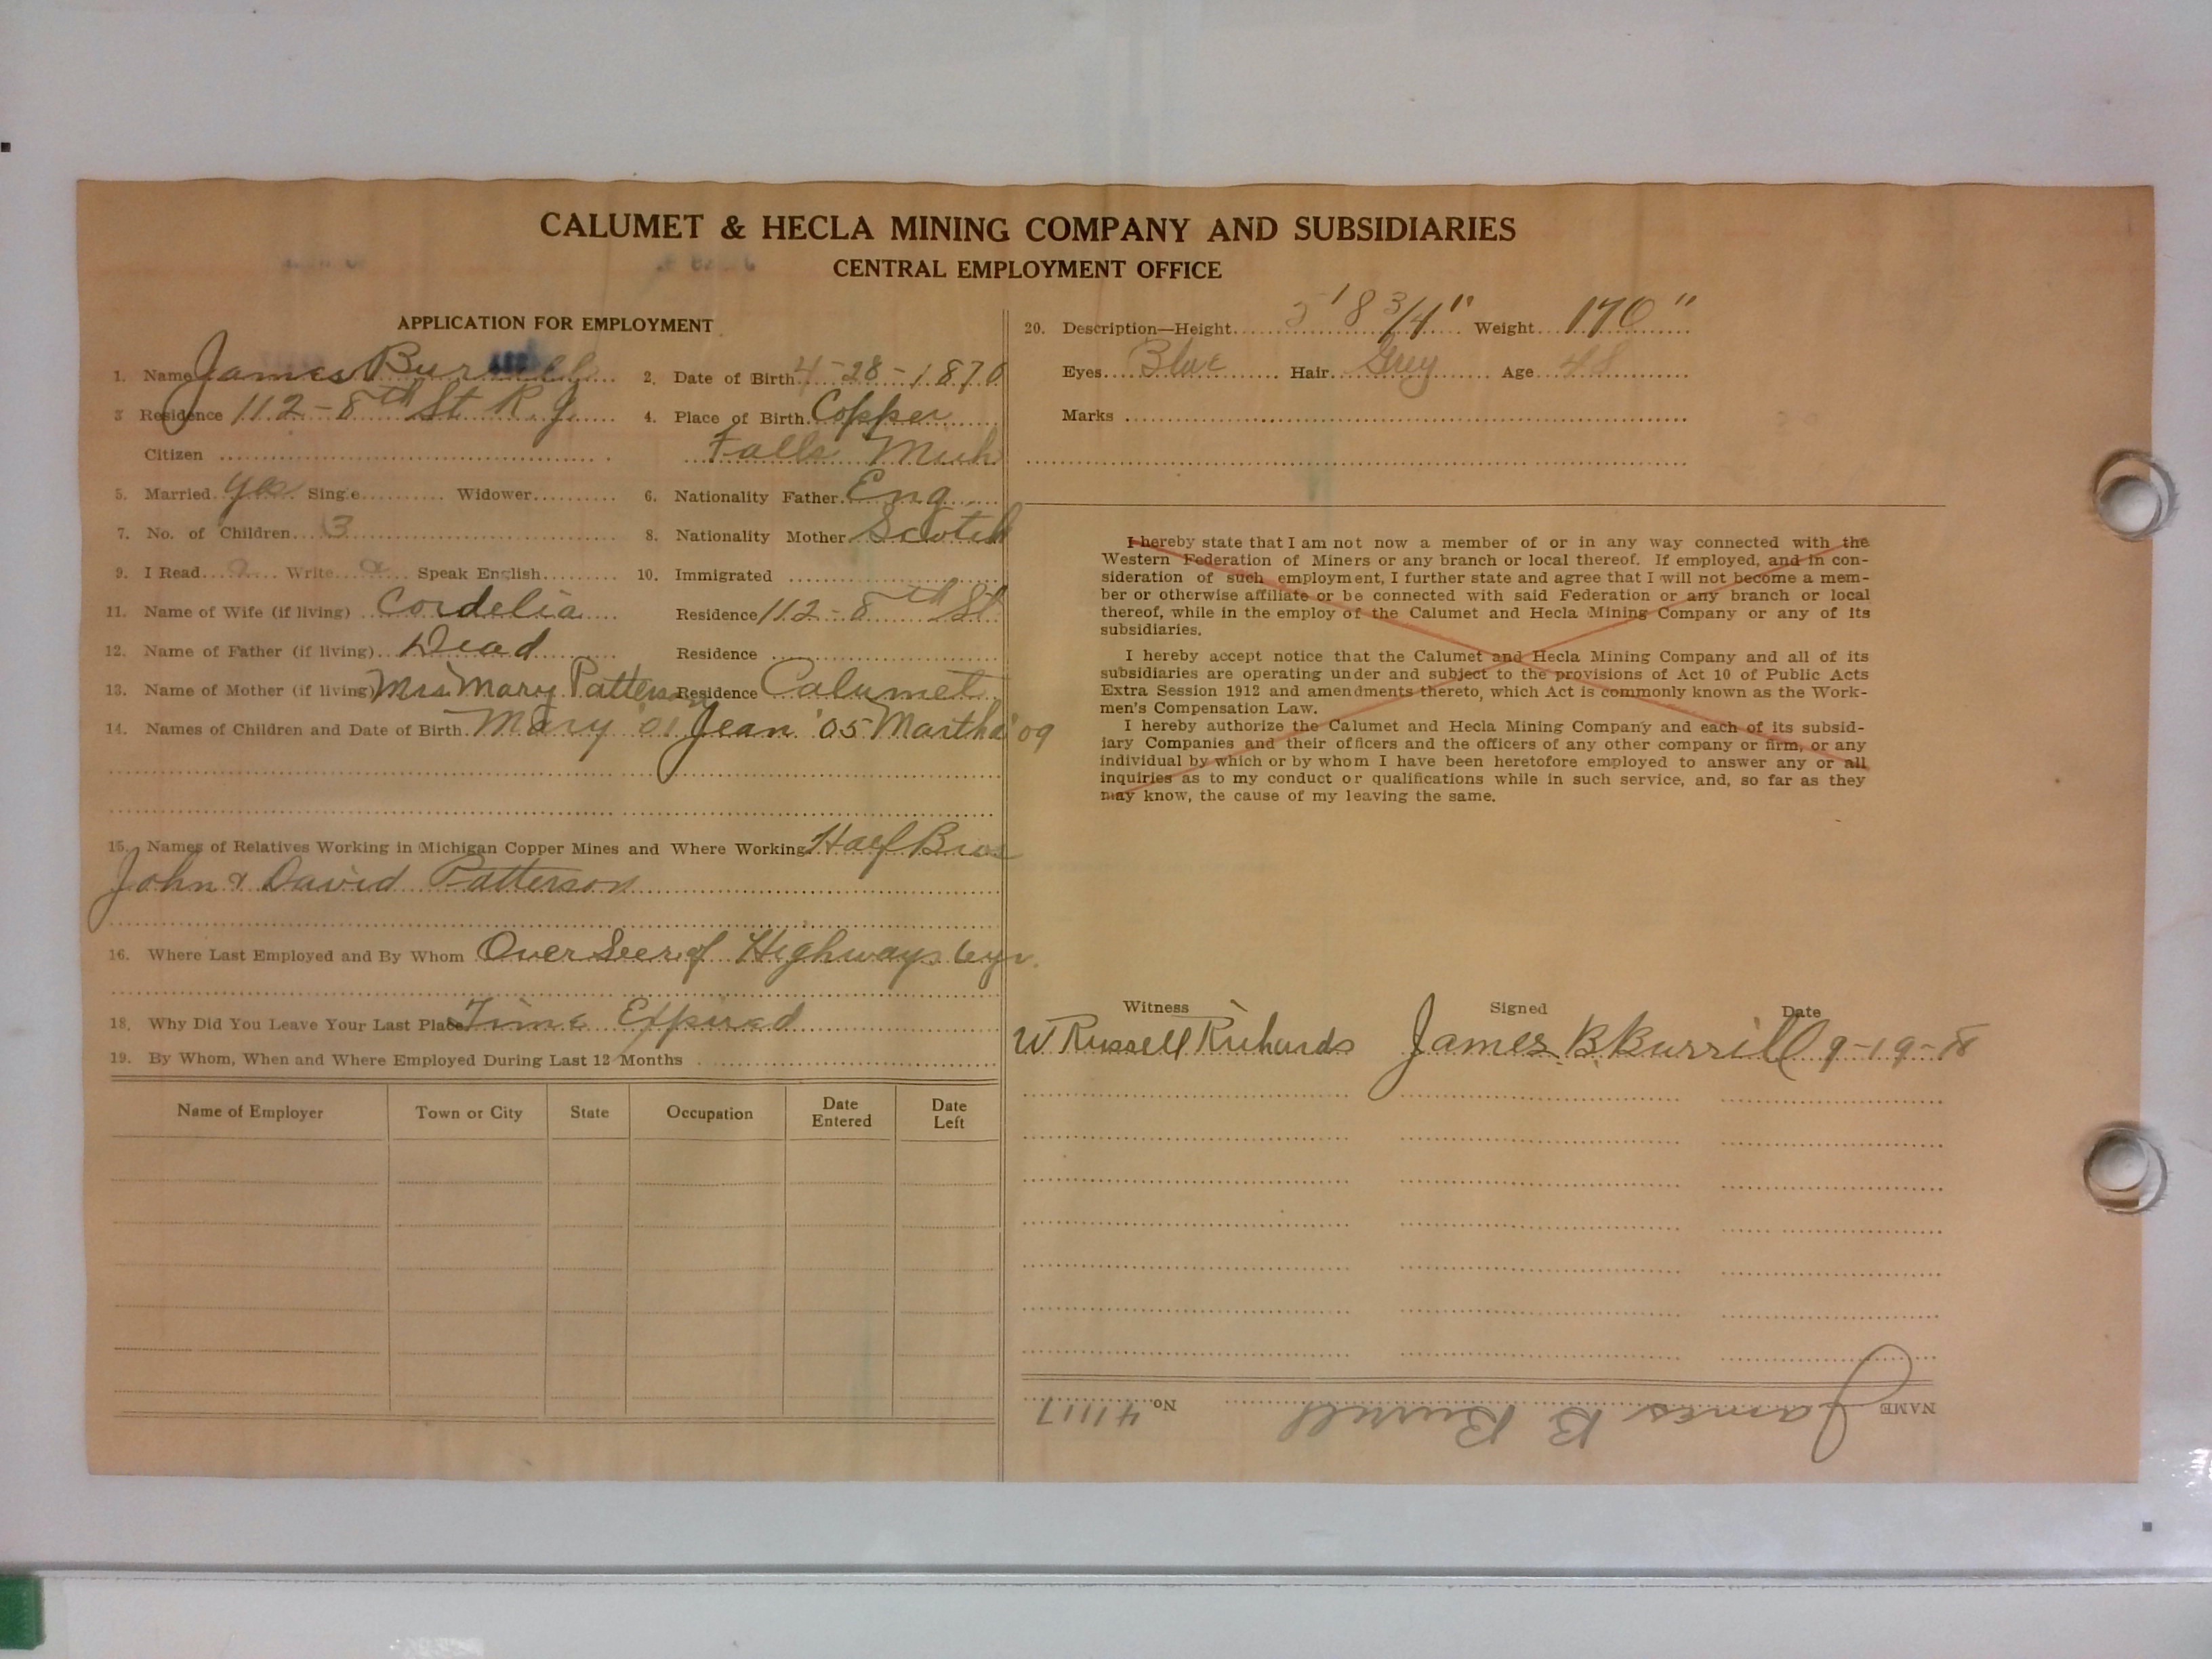 CALUMET & HECLA MINING COMPANY AND SUBSIDIARIES
CENTRAL EMPLOYMENT OFFICE
APPLICATION FOR EMPLOYMENT
1. Name James Burrell 2. Date of Birth 4-28-1870
3 Residence 112-8th St R.J. 4. Place of Birth Copper
Citizen Falls Mich
5. Married yes Single Widower 6. Nationality Father Eng
7. No. of Children 3 8. Nationality Mother Scotch
9. I Read Write Speak English 10. Immigrated
11. Name of Wife (if living) Cordelia Residence 112-8th St
12. Name of Father (if living) Dead Residence
13. Name of Mother (if living) Mrs Mary Patterson Residence Calumet
14. Names of Children and Date of Birth Mary '01 Jean '05 Martha '09
15. Names of Relatives Working in Michigan Copper Mines and Where Working Half Bros
John & David Patterson
16. Where Last Employed and By Whom Over Seer of Highways 6 yr.
18. Why Did You Leave Your Last Place Time Expired
19. By Whom, When and Where Employed During Last 12 Months
Name of Employer Town or City State Occupation Date Entered Date Left
20. Description—Height 5' 8 3/4" Weight 170"
Eyes Blue Hair Grey Age 48
Marks
I hereby state that I am not now a member of or in any way connected with the
Western Federation of Miners or any branch or local thereof. If employed, and in con-
sideration of such employment, I further state and agree that I will not become a mem-
ber or otherwise affiliate or be connected with said Federation or any branch or local
thereof, while in the employ of the Calumet and Hecla Mining Company or any of its
subsidiaries.
I hereby accept notice that the Calumet and Hecla Mining Company and all of its
subsidiaries are operating under and subject to the provisions of Act 10 of Public Acts
Extra Session 1912 and amendments thereto, which Act is commonly known as the Work-
men's Compensation Law.
I hereby authorize the Calumet and Hecla Mining Company and each of its subsid-
iary Companies and their officers and the officers of any other company or firm, or any
individual by which or by whom I have been heretofore employed to answer any or all
inquiries as to my conduct or qualifications while in such service, and, so far as they
may know, the cause of my leaving the same.
Witness Signed Date
W Russell Richards James B. Burrill 9-19-18
NAME James B Burrell No. 41117